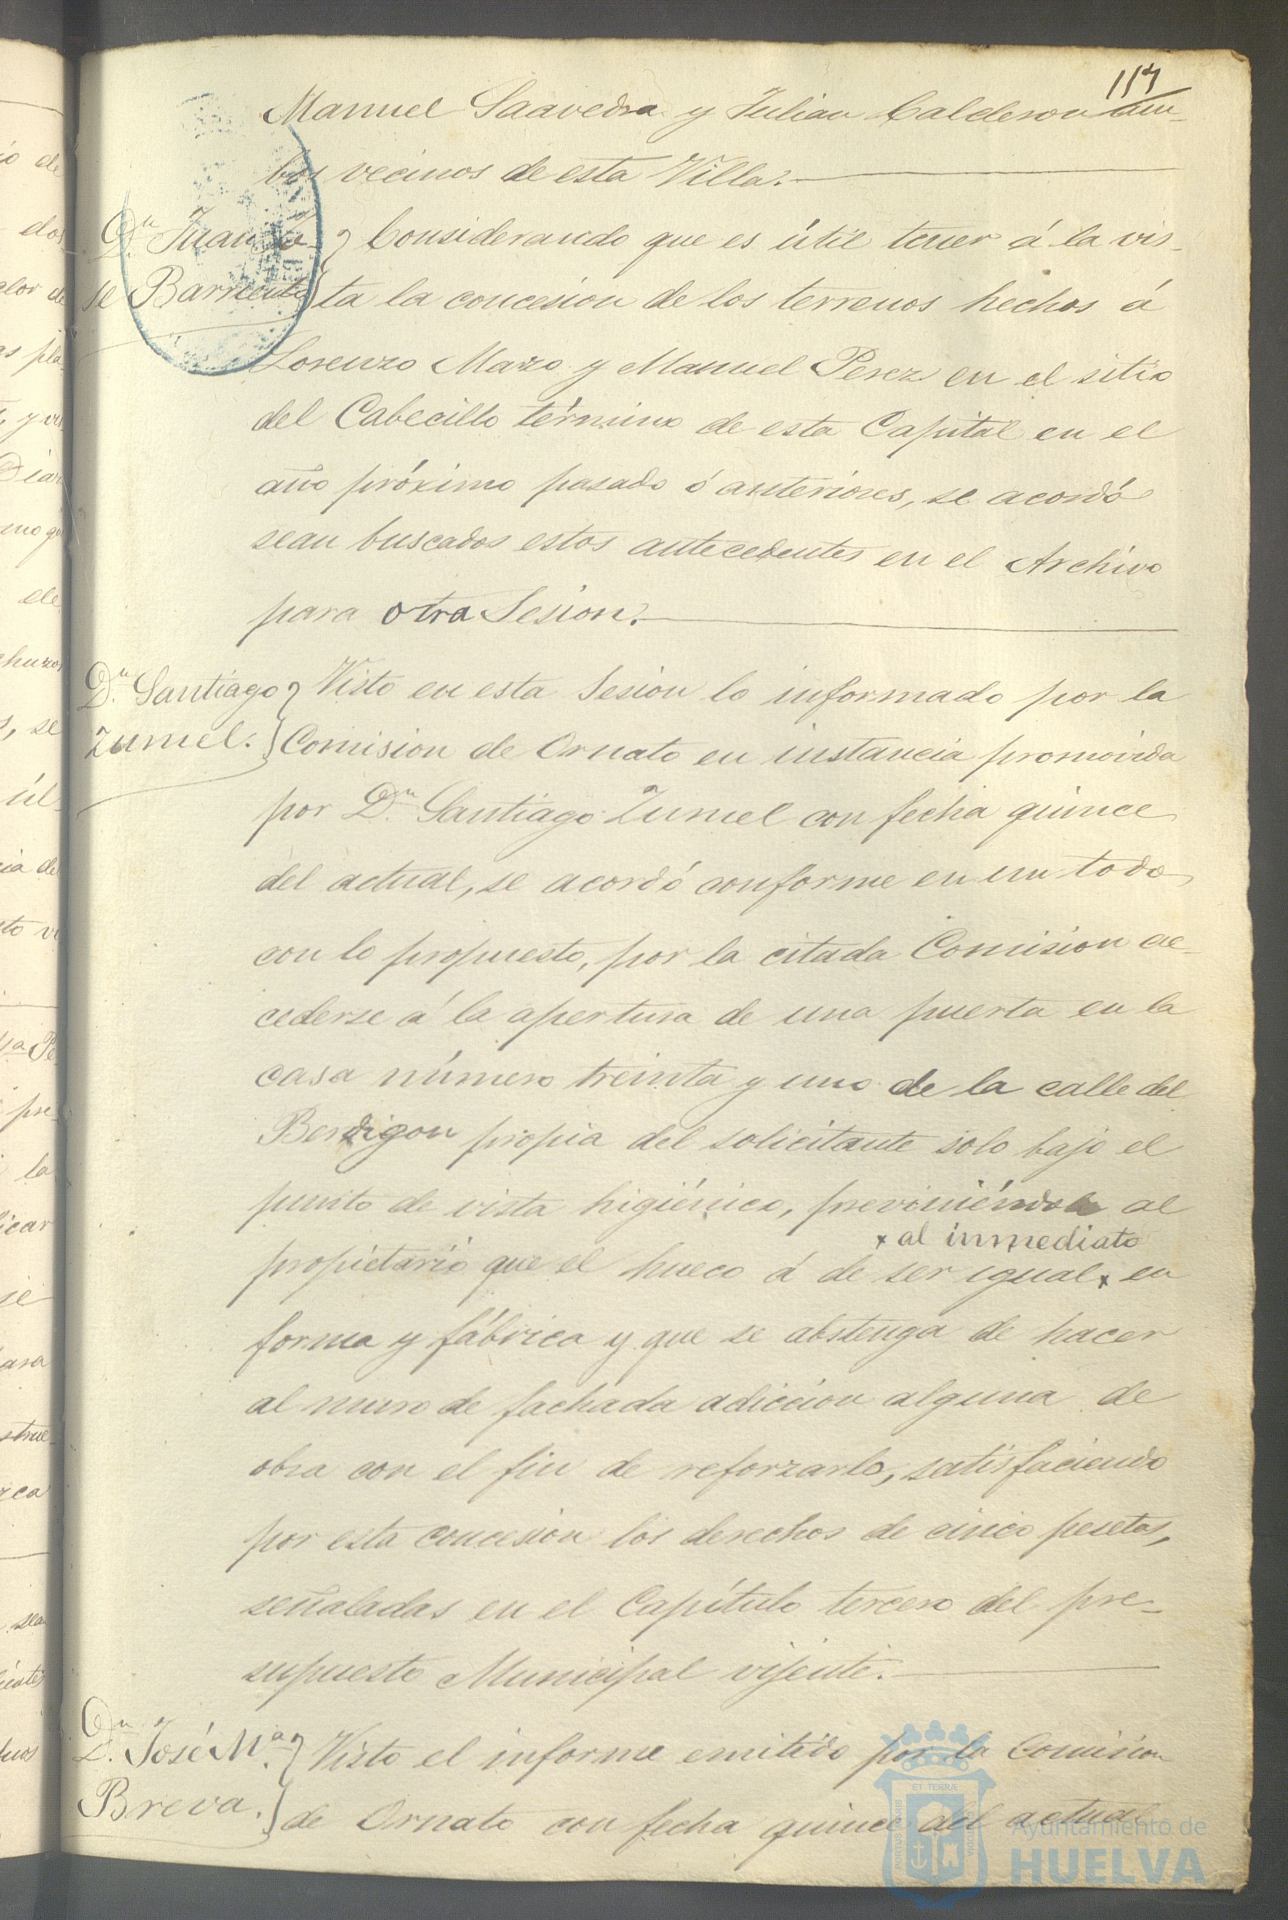 117
Manuel Saavedra y Julian Calderon am-
bos vecinos de esta Villa.
Dn. Juan Jo-
se Barriento
Considerando que es útil tener á la vis-
ta la concesion de los terrenos hechos á
Lorenzo Mazo y Manuel Perez en el sitio
del Cabecillo término de esta Capital en el
año próximo pasado ó anteriores, se acordó
sean buscados estos antecedentes en el Archivo
para otra Sesion.
Dn. Santiago
Zumel.
Visto en esta Sesion lo informado por la
Comision de Ornato en instancia promovida
por Dn. Santiago Zumel con fecha quince
del actual, se acordó conforme en un todo
con lo propuesto, por la citada Comision ac-
cederse á la apertura de una puerta en la
casa número treinta y uno de la calle del
Berdigon propia del solicitante solo bajo el
punto de vista higiénico, previniéndole al
x al inmediato
propietario que el hueco á de ser igual x en
forma y fábrica y que se abstenga de hacer
al muro de fachada adiccion alguna de
obra con el fin de reforzarlo, satisfaciendo
por esta concesion los derechos de cinco pesetas,
señaladas en el Capítulo tercero del pre-
supuesto Municipal vijente.
Dn. José Ma.
Breva.
Visto el informe emitido por la Comision
de Ornato con fecha quince del actual
Ayuntamiento de
HUELVA